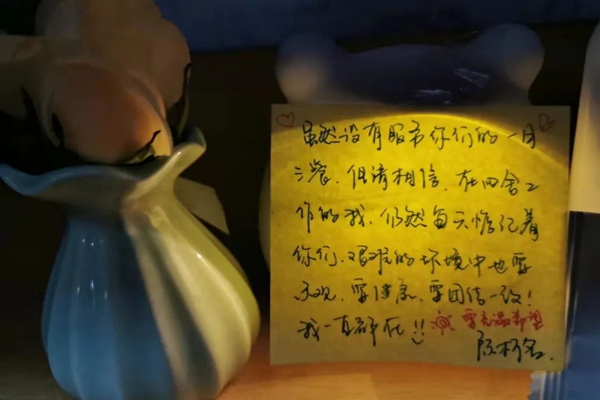 虽然没有服务你们的一日
三餐，但请相信，在四舍工
作的我，仍然每天惦记着
你们，艰难的环境中也要
乐观，要健康，要团结一致！
我一直都在!! 要充满希望